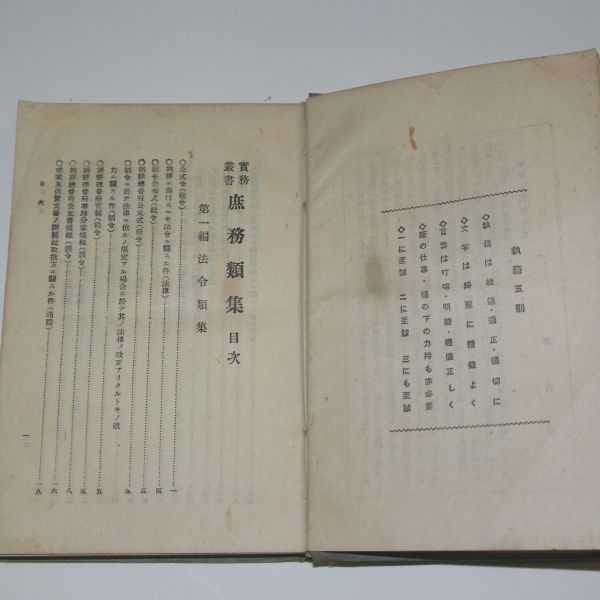 執務五則
◇執務は敏速・適正・適切に
◇文字は綺麗に體裁よく
◇言語は叮嚀・明瞭・禮儀正しく
◇蔭の仕事・縁の下の力持も亦必要
◇一に至誠 二に至誠 三にも至誠
實務叢書 庶務類集 目次
第一編 法令類集
○公式令(勅令)…一
○朝鮮ニ施行スヘキ法令ニ關スル件(法律)…四
○制令公布式(統令)…五
○朝鮮總督府公文式(府令)…九
○制令ニ於テ法律ニ依ルノ規定アル場合ニ於テ其ノ法律ノ改正アリタルトキノ效
力ニ關スル件(制令)…五
○朝鮮總督府官制(勅令)…五
○朝鮮總督府事務分掌規程(訓令)…八
○朝鮮總督府公文書規程(訓令)…一六
○成案及供覽文書ノ調製竝取扱方ニ關スル件(通牒)…一九
目次
一